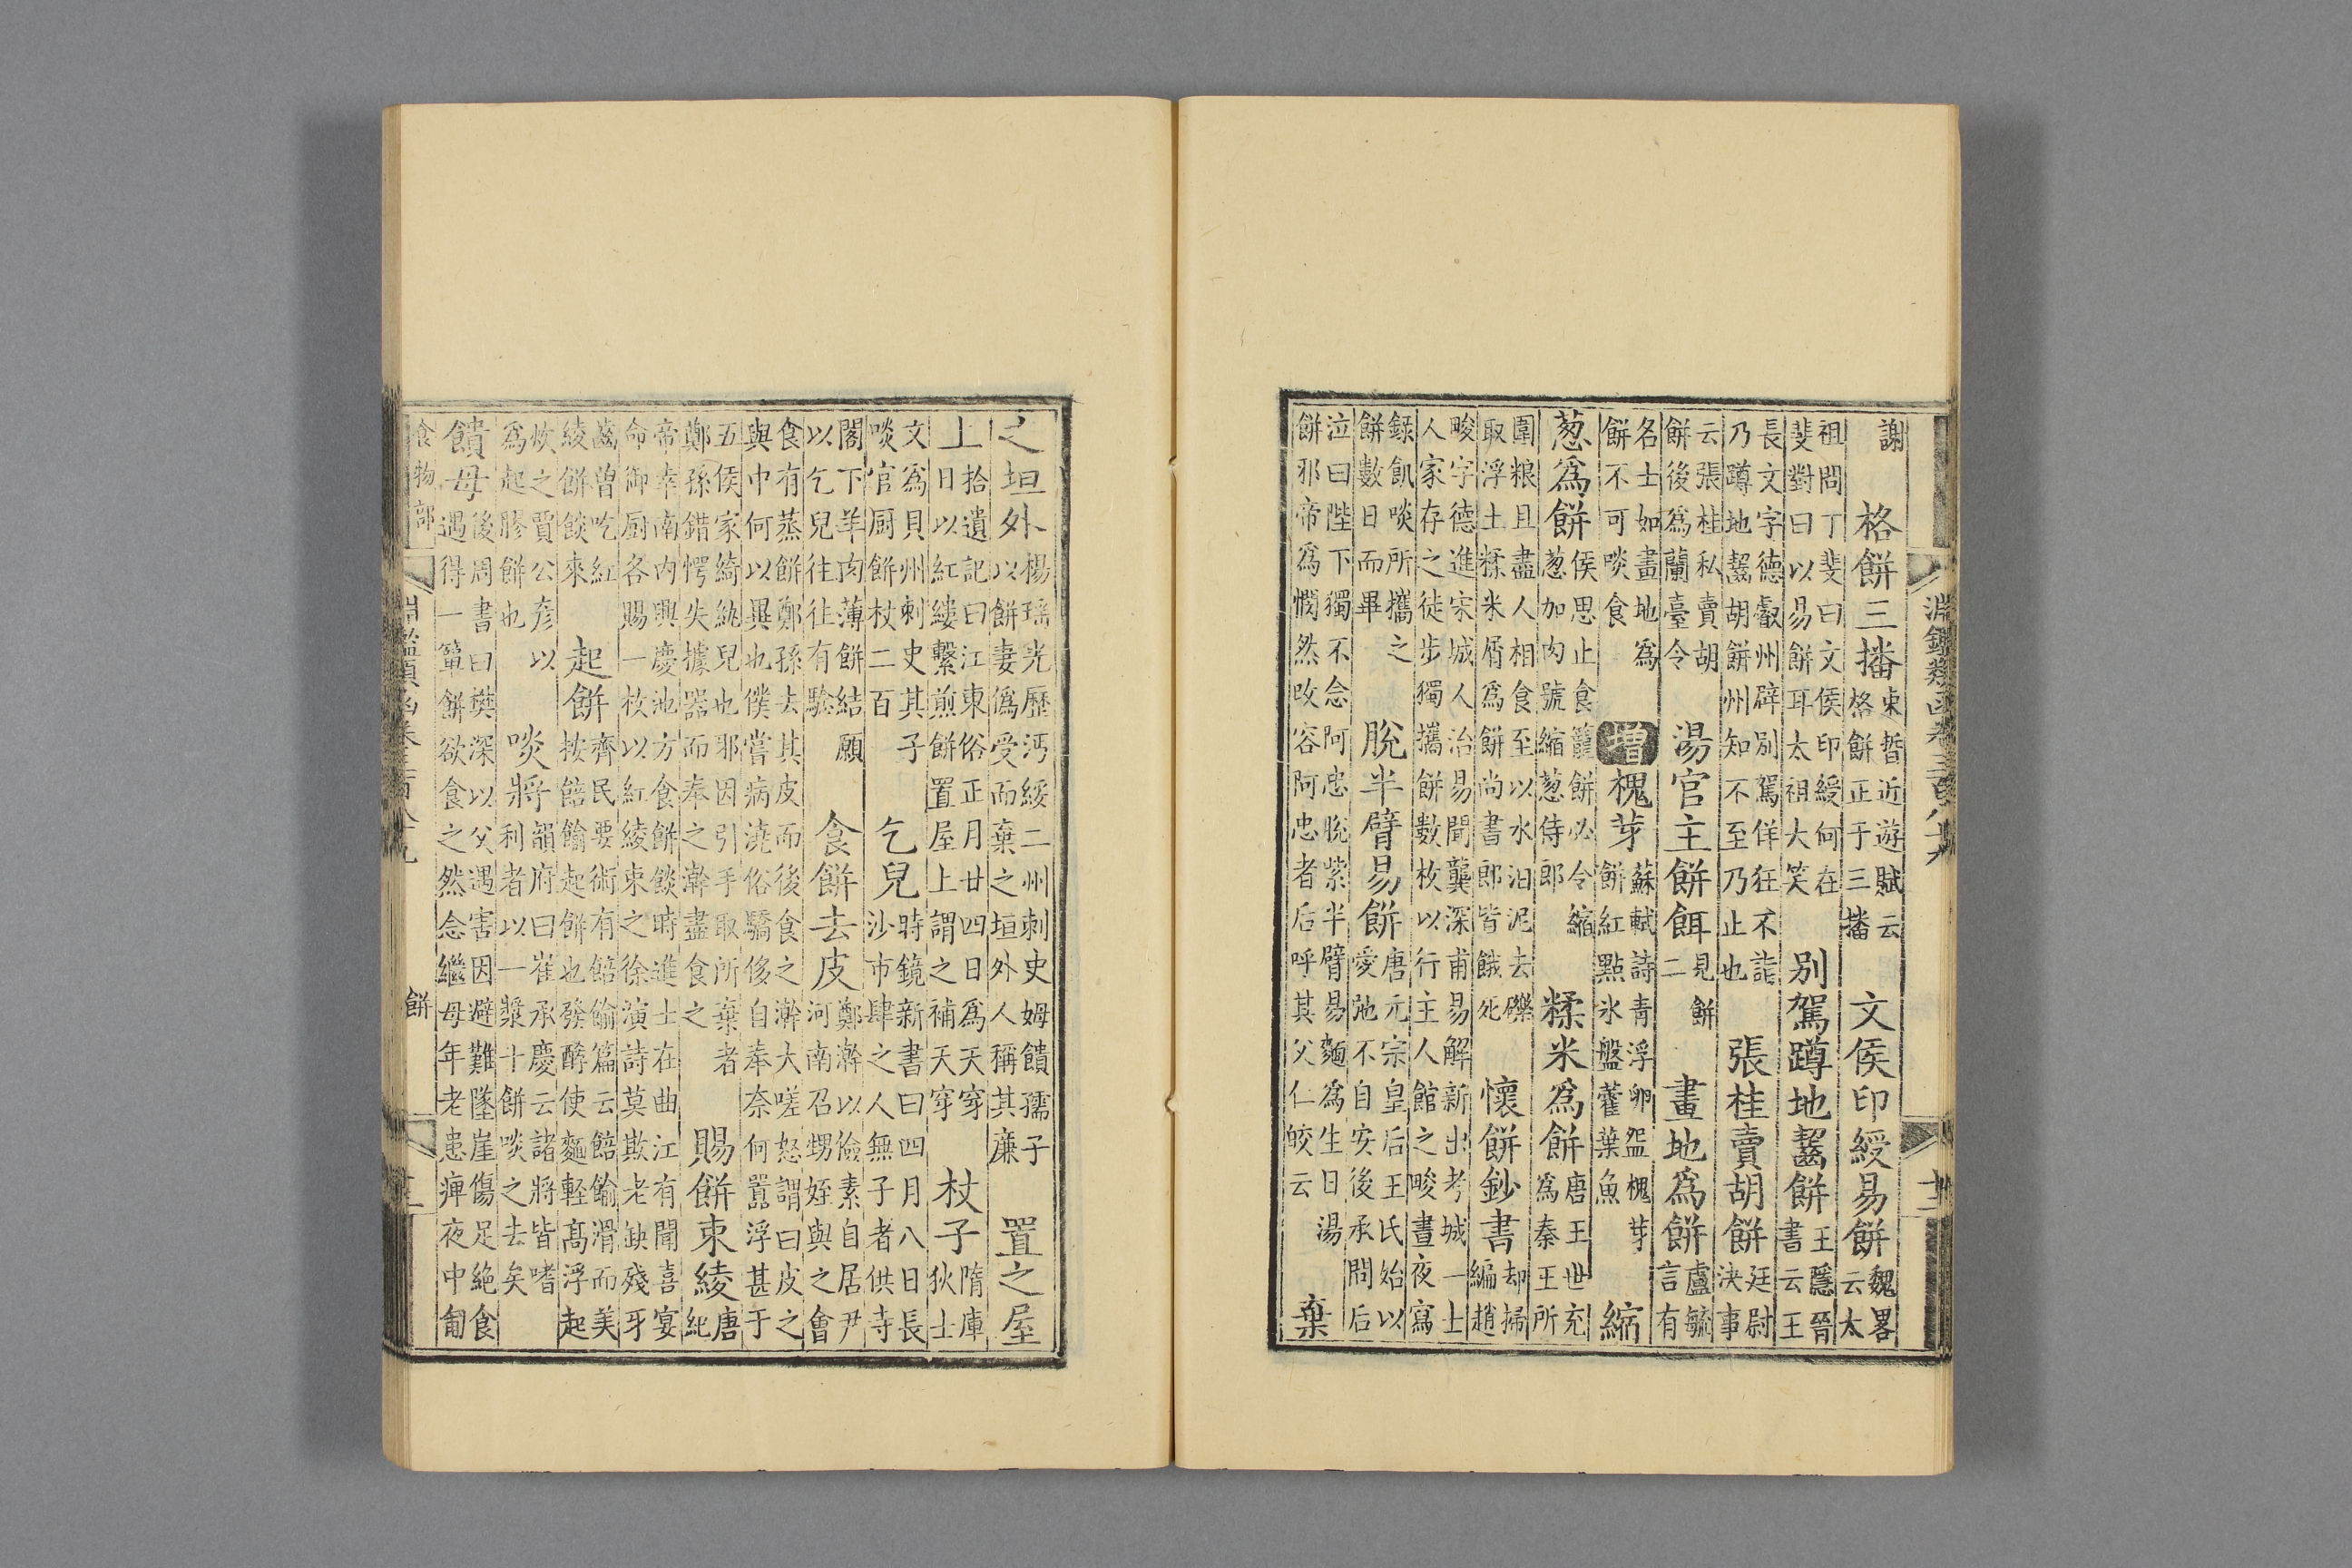 淵鑑類函卷三百八十九
十二
謝
格餅三播束晳近遊賦云格餅正于三播 文侯印綬易餅魏畧云太
祖問丁斐曰文侯印綬何在斐對曰以易餅耳太祖大笑 別駕蹲地齧餅王隱晉書云王
長文字德叡州辟別駕佯狂不詣乃蹲地齧胡餅州知不至乃止也 張桂賣胡餅廷尉決事
云張桂私賣胡餅後爲蘭臺令 湯官主餅餌見餅二 畫地爲餅盧毓言有
名士如畫地爲餅不可啖食 增槐芽蘇軾詩青浮卵盌槐芽餅紅點氷盤藿葉魚 縮
葱爲餅侯思止食籠餅必令縮葱加肉號縮葱侍郎 糅米爲餅唐王世充爲秦王所
圍粮且盡人相食至以水汩泥去礫取浮土糅米屑爲餅尚書郎皆餓死 懷餅鈔書却掃編趙
畯字德進宋城人治易聞龔深甫易解新出考城一士人家存之徒步獨攜餅數枚以行主人館之畯晝夜寫
録飢啖所攜之餅數日而畢 脫半臂易餅唐元宗皇后王氏始以愛弛不自安後承問后
泣曰陛下獨不念阿忠脫紫半臂易麵爲生日湯餅邪帝爲憫然改容阿忠者后呼其父仁皎云 棄
之垣外楊瑶光歷沔綏二州刺史姆饋孺子以餅妻僞受而棄之垣外人稱其廉 置之屋
上拾遺記曰江東俗正月廿四日爲天穿日以紅縷繫煎餅置屋上謂之補天穿 杖子隋庫狄士
文爲貝州刺史其子啖官厨餅杖二百 乞兒時鏡新書曰四月八日長沙市肆之人無子者供寺
閣下羊肉薄餅結願以乞兒往往有驗 食餅去皮鄭澣以儉素自居尹河南召甥姪與之會
食有蒸餅鄭孫去其皮而後食之澣大嗟怒謂曰皮之與中何以異也僕嘗病澆俗驕侈自奉奈何囂浮甚于
五侯家綺紈兒也邪因引手取所棄者鄭孫錯愕失據器而奉之澣盡食之 賜餅束綾唐紀
帝幸南内興慶池方食餅餤時進士在曲江有聞喜宴命御厨各賜一枚以紅綾束之徐演詩莫欺老缺殘牙
齒曽吃紅綾餅餤來 起餅齊民要術有餢𩜇篇云餢𩜇滑而美按餢𩜇起餅也發酵使麵軽高浮起
炊之賈公彦以爲起膠餅也 啖將韻府曰崔承慶云諸將皆嗜利者以一漿十餅啖之去矣
饋母後周書曰樊深以父遇害因避難墜崖傷足絶食遇得一簞餅欲食之然念繼母年老患痺夜中匍
食物部 餅
淵鑑類函卷三百八十九